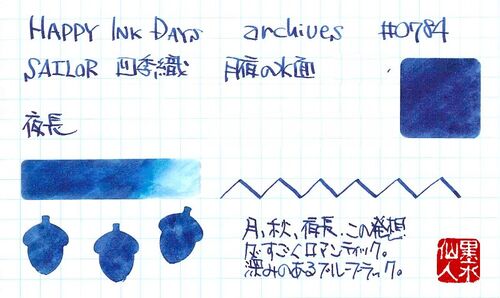 HAPPY INK DAYS archives #0784
SAILOR 四季織 月夜の水面
夜長
月、秋、夜長、この発想
がすごくロマンティック。
深みのあるブルーブラック。
墨水
仙人